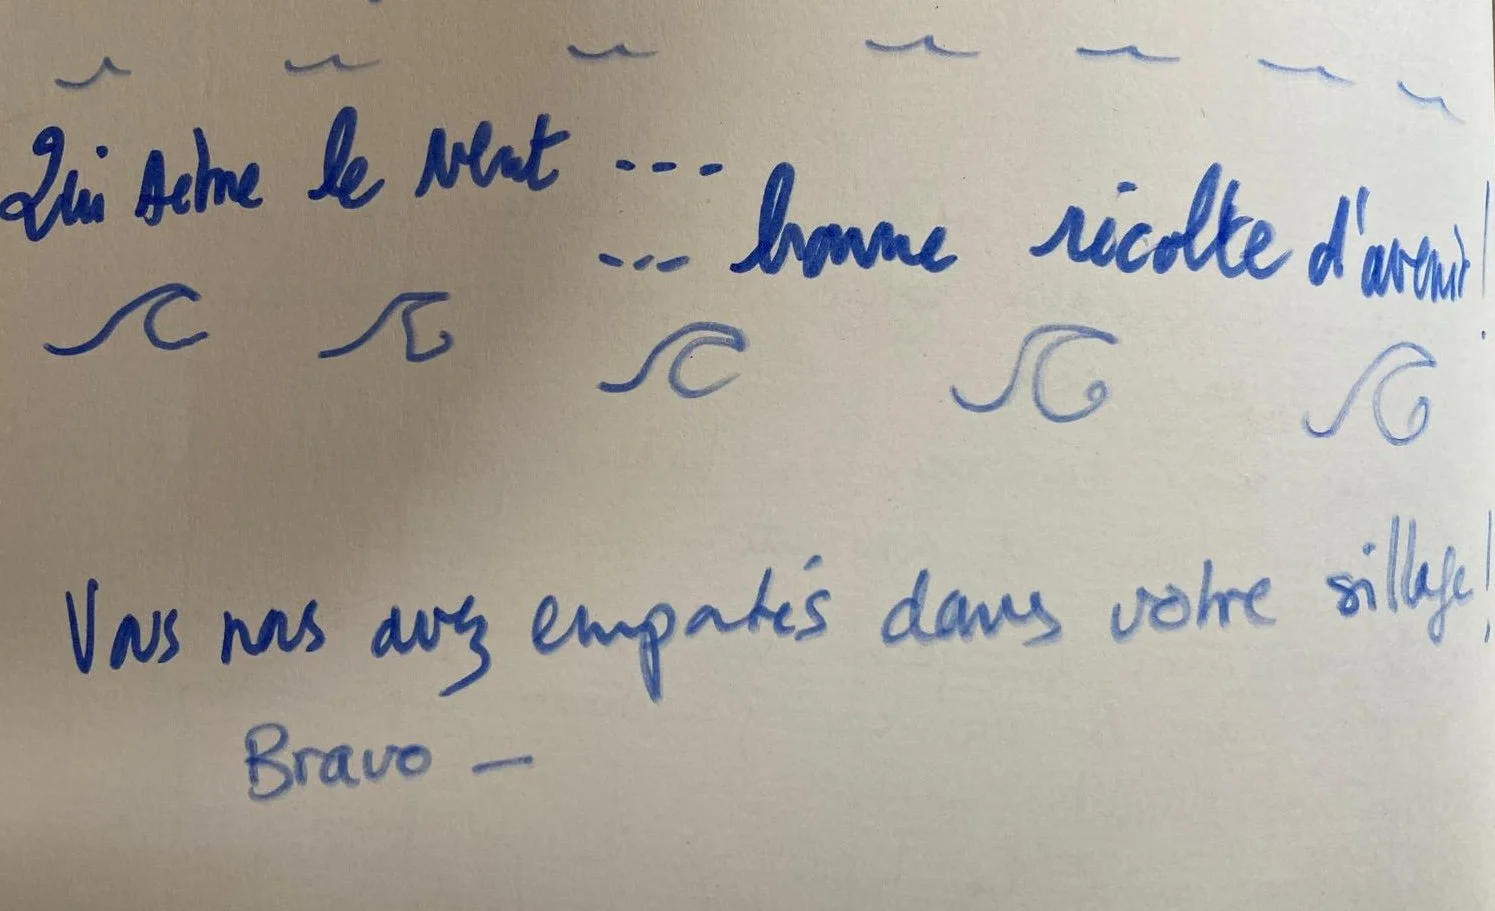 Qui sème le vent ...
... bonne récolte d'avenir !
Vous nous avez empatés dans votre sillage !
Bravo –